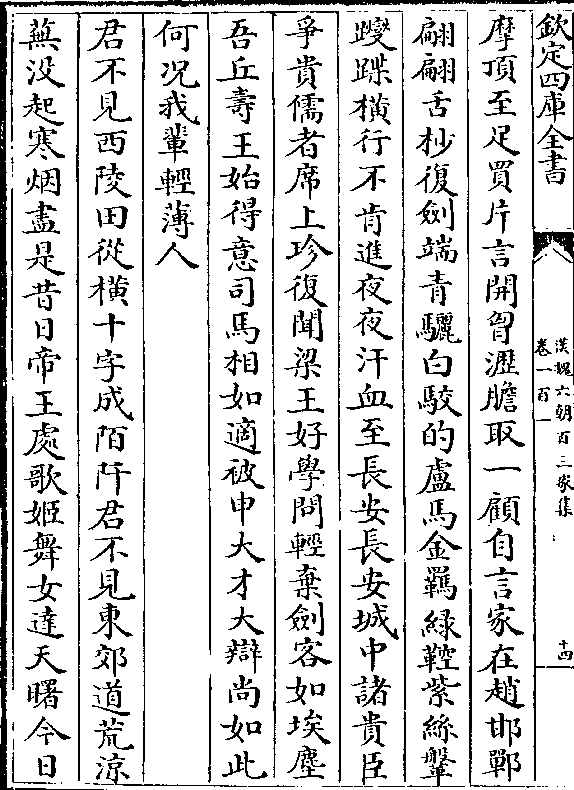 欽定四庫全書
漢魏六朝百三家集
卷一百一
十四
摩頂至足買片言開胷瀝膽取一顧自言家在趙邯鄲
翩翩舌杪復劍端青驪白駮的盧馬金羈緑鞚紫絲鞶
躞蹀横行不肯進夜夜汗血至長安長安城中諸貴臣
爭貴儒者席上珍復聞梁王好學問輕棄劍客如埃塵
吾丘壽王始得意司馬相如適被申大才大辯尚如此
何况我輩輕薄人
君不見西陵田從橫十字成陌阡君不見東郊道荒涼
蕪没起寒烟盡是昔日帝王處歌姬舞女達天曙今日